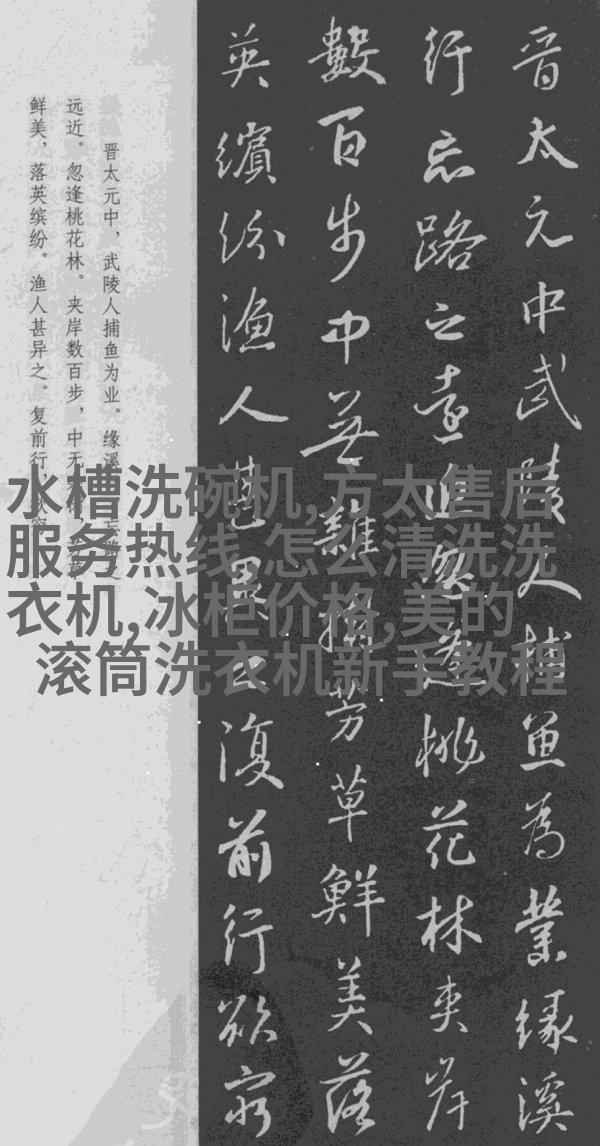 晋太元中武陵人捕魚為業緣溪
行忘路之遠近忽逢桃花林夾岸
數百步中無雜樹芳草鮮美落
英繽紛漁人甚異之復前行欲窮
晋太元中，武陵人捕鱼为业。缘溪
远近。忽逢桃花林。夹岸数百步，中无
鲜美，落英缤纷。渔人甚异之。复前行，欲穷
水槽洗碗机,方太售后
服务热线,怎么清洗洗
衣机,冰柜价格,美的
滚筒洗衣机新手教程